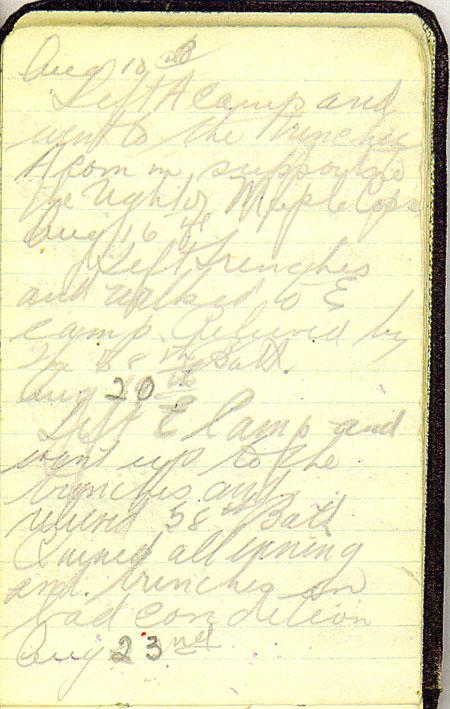 Aug 10th
Left A camp and
went to the trenches
A com in support on
the right of Maple Cops
Aug 16th
Left trenches
and walked to E
camp. Relieved by
58th Batt.
Aug 20th
Left E Camp and
went up to the
trenches and
relieved 58th Batt
Rained all evning
and trenches in
bad condition
Aug 23rd